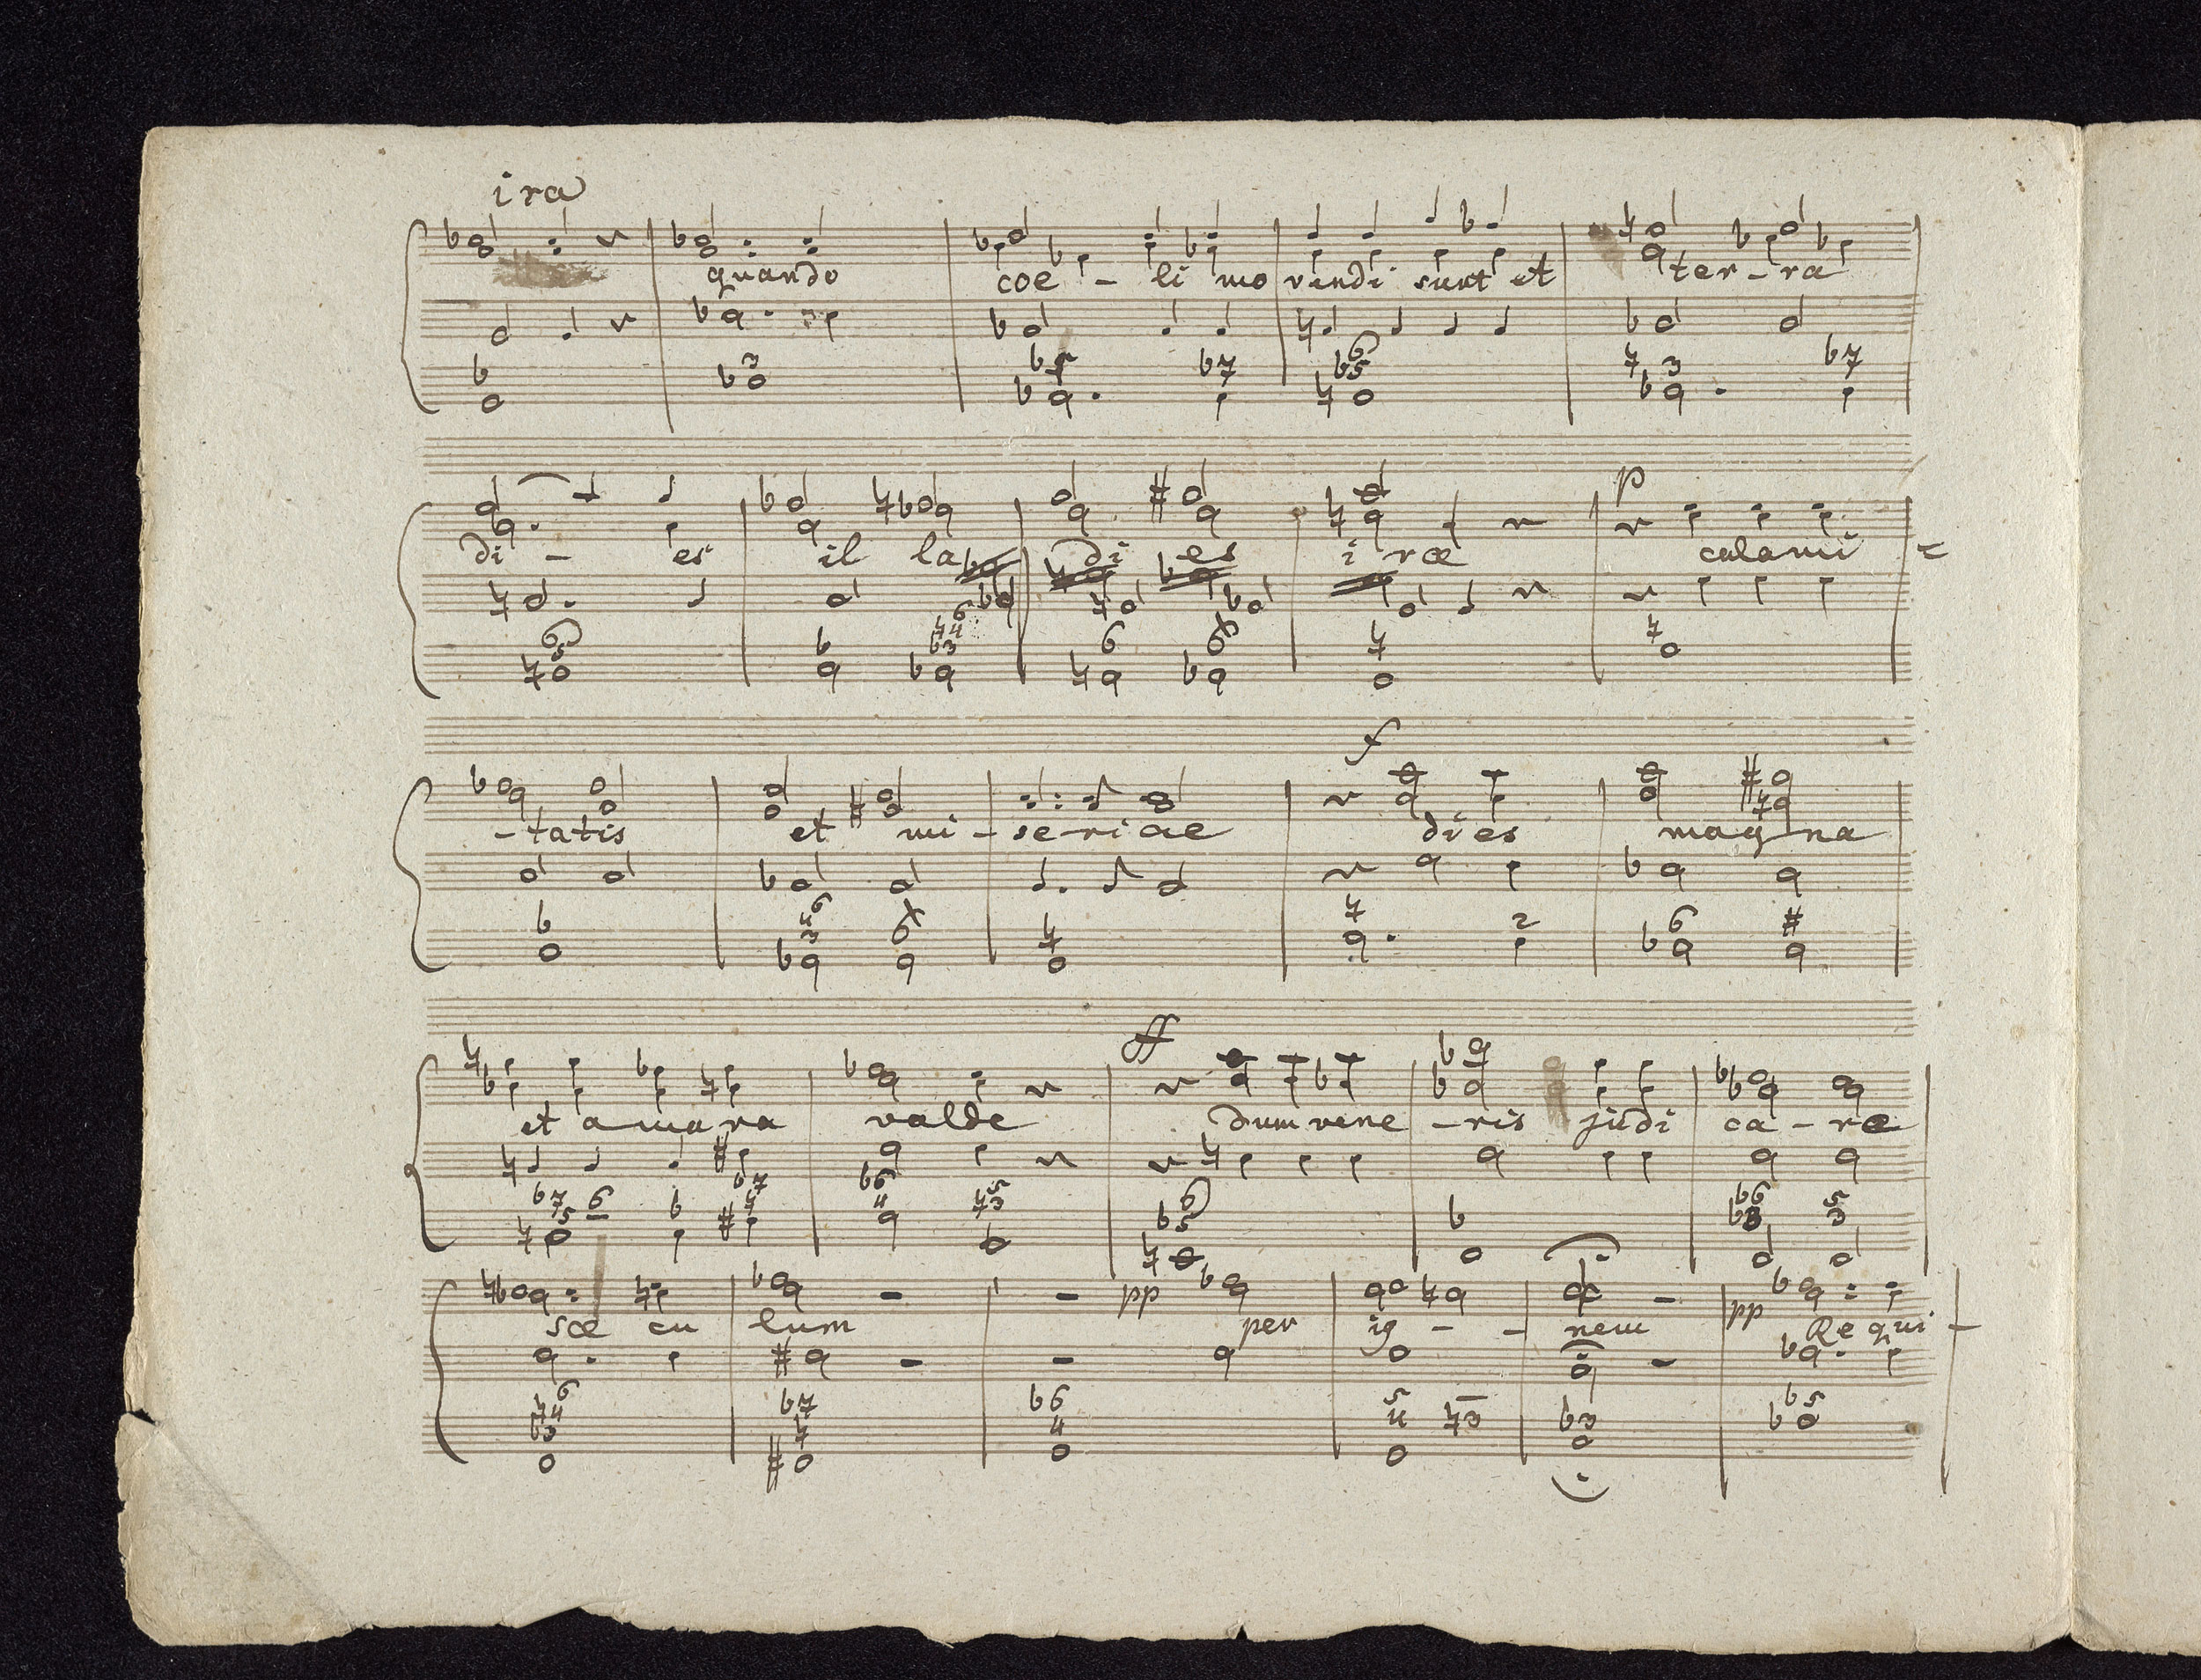 ira
quando coe - li mo vendi sunt et ter - ra
p
di - es il la di es i ræ calami =
f
- tatis et mi - se ri ae dies magna
ff
et amara valde dum vene - ris judi ca - re
pp pp
sæ cu lum per ig - - nem Requi -